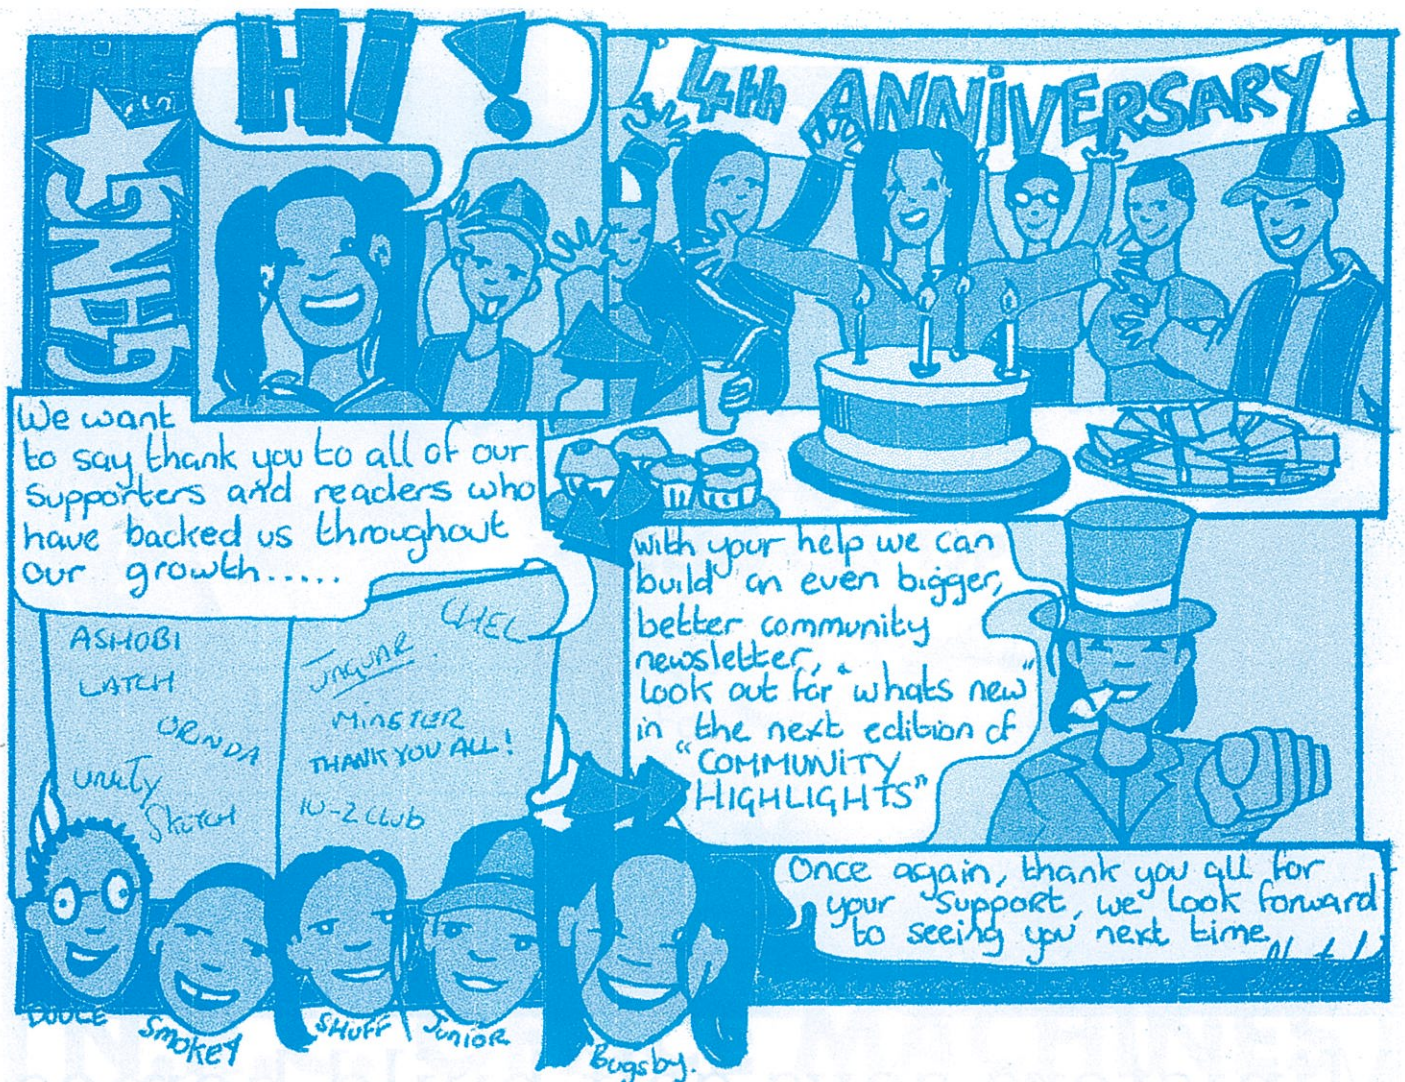 GANG
HI!
4th ANNIVERSARY
We want
to say thank you to all of our
supporters and readers who
have backed us throughout
our growth.....
ASHOBI
LATCH
URNDA
UNITY
SKETCH
CHEL
JAGUAR.
MINSTER
THANK YOU ALL!
10-2 CLUB
with your help we can
build an even bigger,
better community
newsletter,
look out for "whats new"
in the next edition of
"COMMUNITY
HIGHLIGHTS"
Once again, thank you all for
your support, we look forward
to seeing you next time.
SMOKEY
SHUFF
JUNIOR
Bugsby.